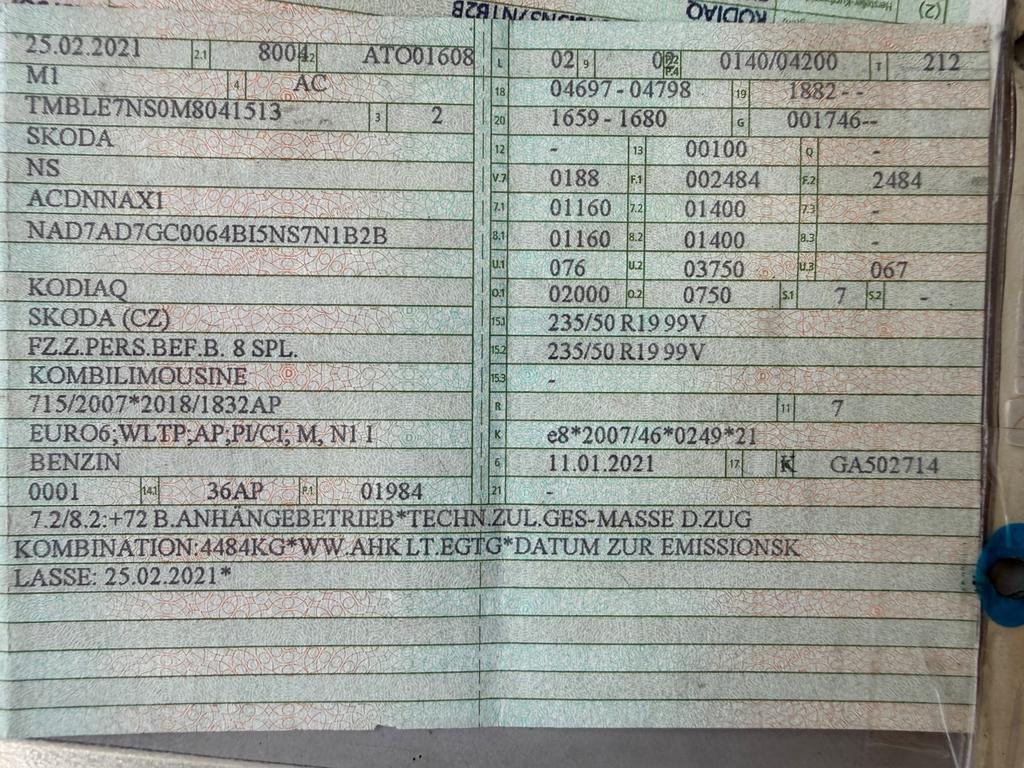 (2) KODIAQ
25.02.2021 2.1 8004 2.2 ATO01608 L 02 9 02 P.2 P.4 0140/04200 T 212
M1 4 AC 18 04697-04798 19 1882--
TMBLE7NS0M8041513 3 2 20 1659-1680 G 001746--
SKODA 12 - 13 00100 Q -
NS V.7 0188 F.1 002484 F.2 2484
ACDNNAX1 7.1 01160 7.2 01400 7.3 -
NAD7AD7GC0064BI5NS7N1B2B 8.1 01160 8.2 01400 8.3 -
U.1 076 U.2 03750 U.3 067
KODIAQ O.1 02000 O.2 0750 S.1 7 S.2 -
SKODA (CZ) 15.1 235/50 R19 99V
FZ.Z.PERS.BEF.B. 8 SPL. 15.2 235/50 R19 99V
KOMBILIMOUSINE 15.3 -
715/2007*2018/1832AP R 11 7
EURO6;WLTP;AP;PI/CI; M, N1 I K e8*2007/46*0249*21
BENZIN 6 11.01.2021 17 K GA502714
0001 14.1 36AP P.1 01984 21 -
7.2/8.2:+72 B.ANHÄNGEBETRIEB*TECHN.ZUL.GES-MASSE D.ZUG
KOMBINATION:4484KG*WW.AHK LT.EGTG*DATUM ZUR EMISSIONSK
LASSE: 25.02.2021*